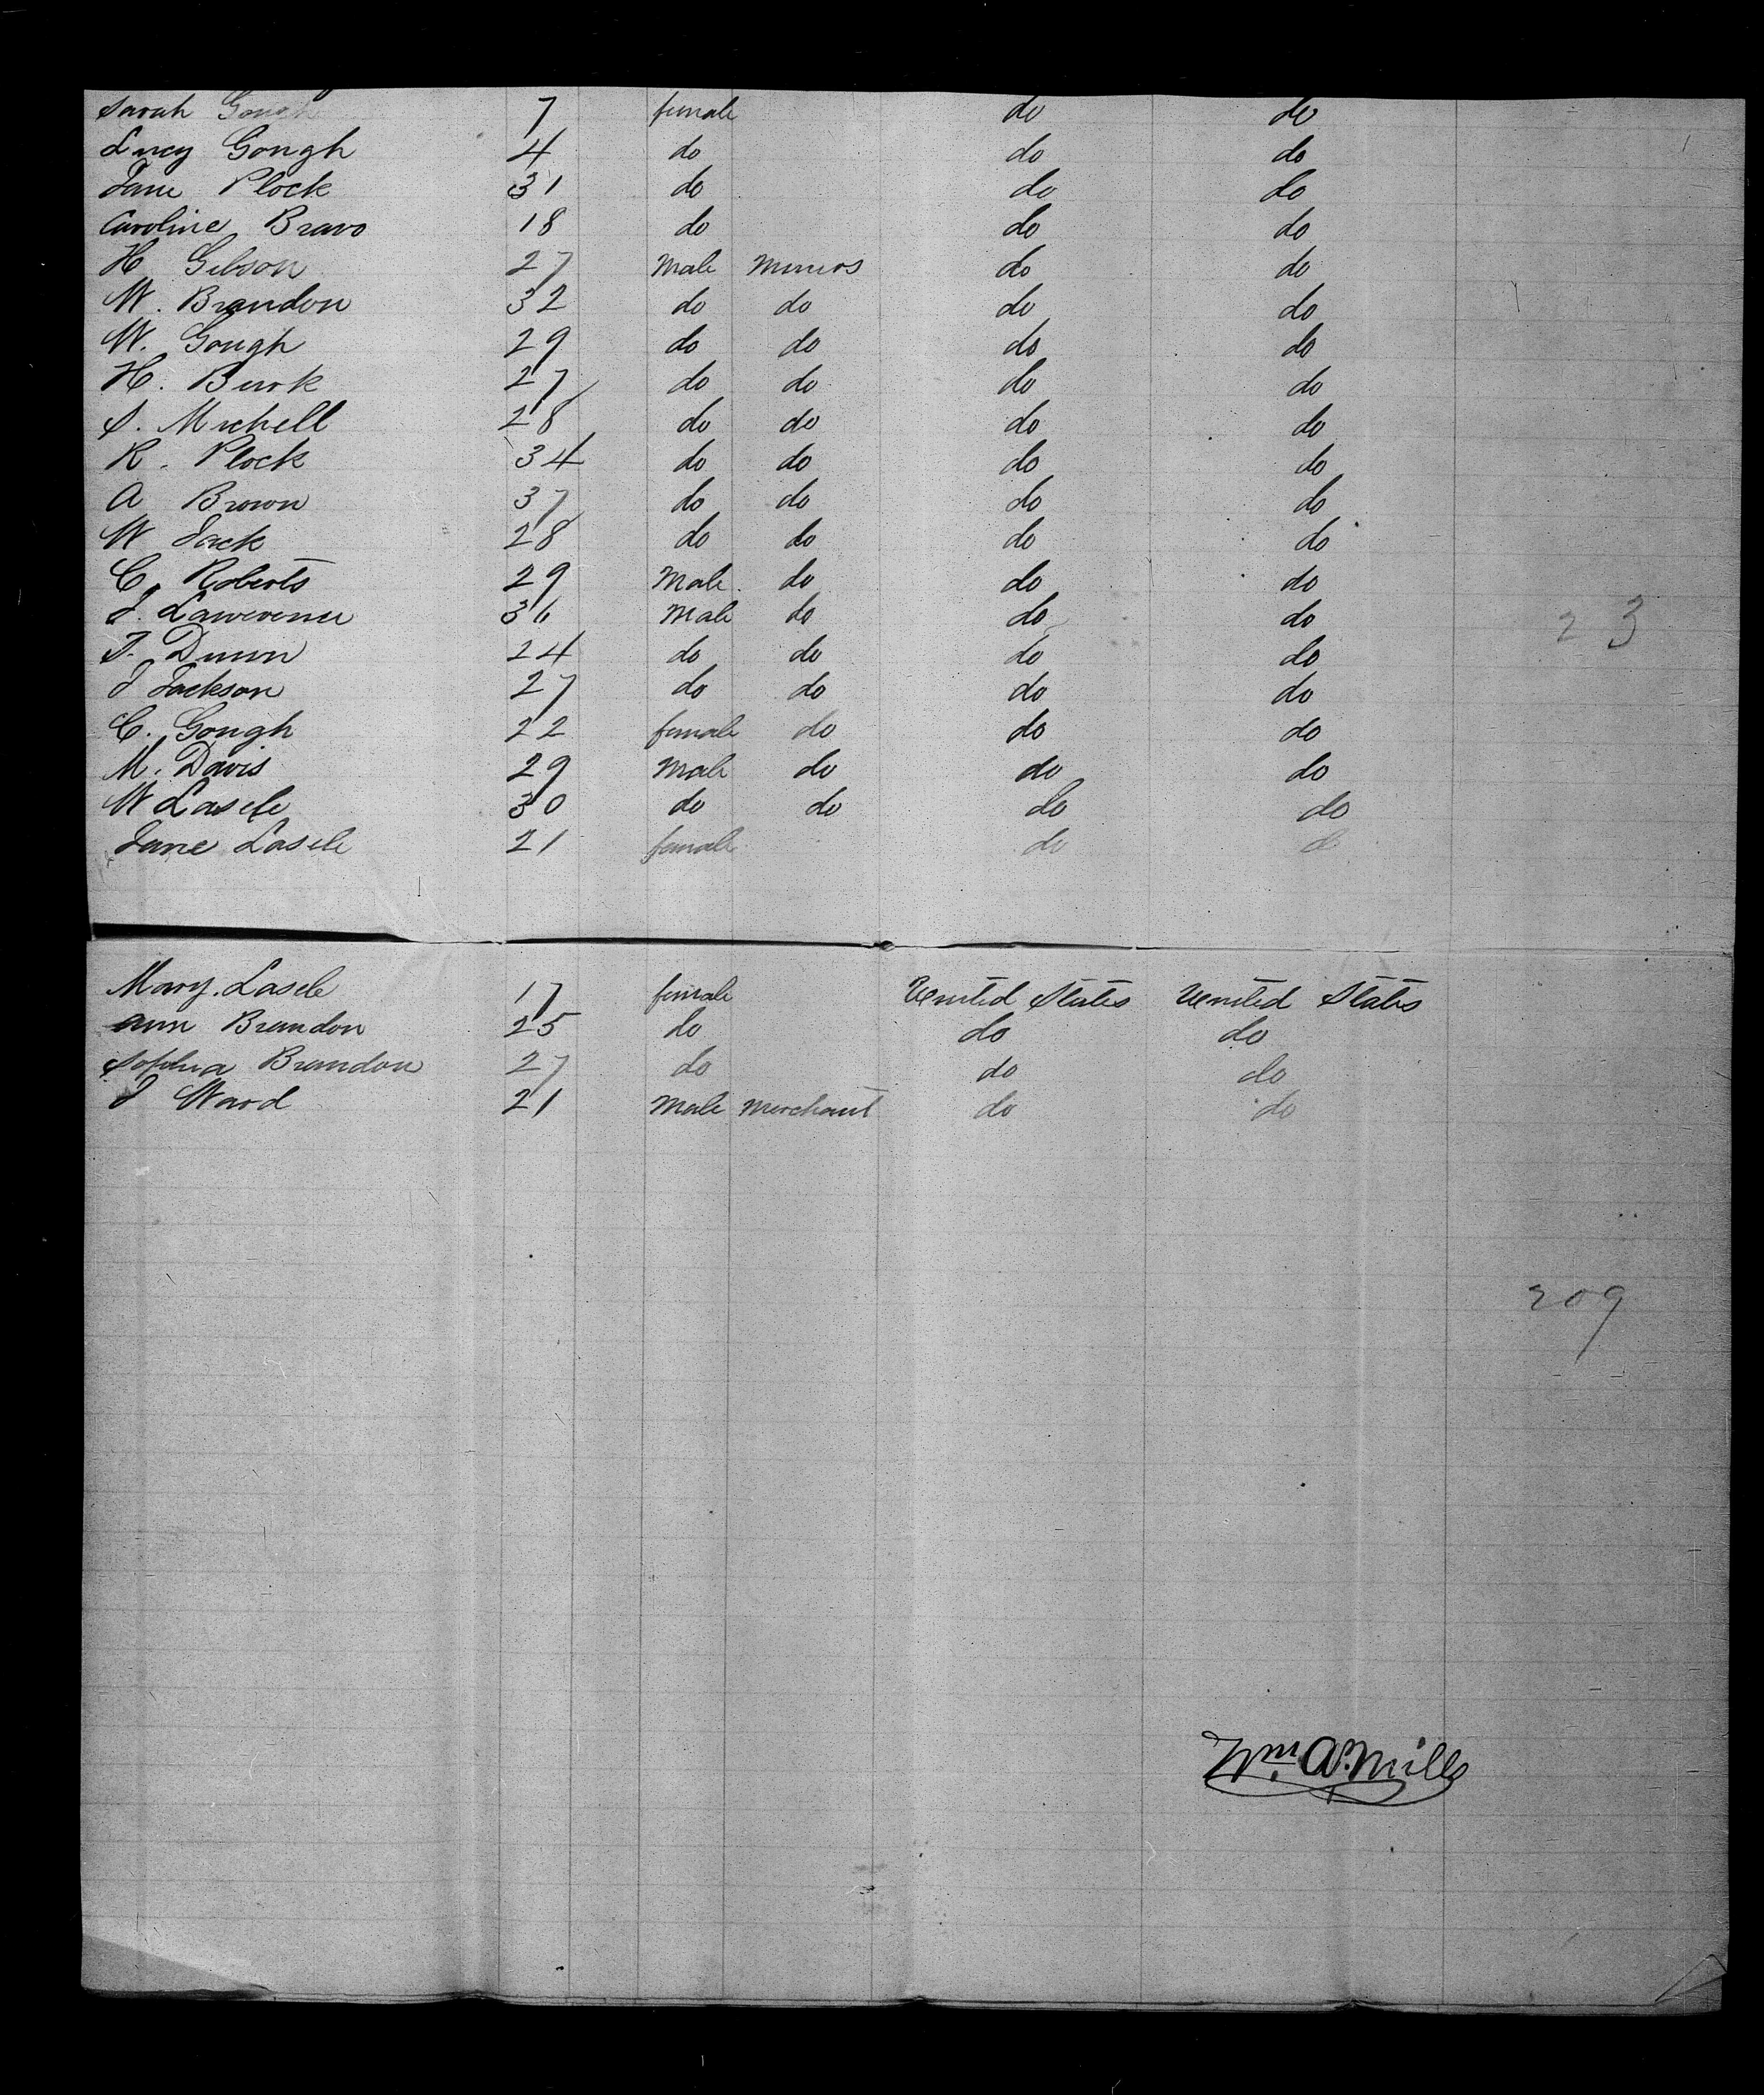 Sarah Gough 7 female do do
Lucy Gough 4 do do do
Jane Plock 31 do do do
Caroline Bravo 18 do do do
H Gibson 27 Male Miners do do
W. Brandon 32 do do do do
W. Gough 29 do do do do
H. Burk 27 do do do do
S. Michell 28 do do do do
R. Plock 34 do do do do
A Brown 37 do do do do
W Jack 28 do do do do
C. Roberts 29 Male do do do
J. Lawerence 36 Male do do do
T. Dunn 24 do do do do
J Jackson 27 do do do do
C. Gough 22 female do do do
M. Davis 29 Male do do do
W Lasele 30 do do do do
Jane Lasele 21 female do do
Mary. Lasele 17 female United States United States
Ann Brandon 25 do do do
Sophia Brandon 27 do do do
J Ward 21 Male Merchant do do
23
209
Wm. A. Mills